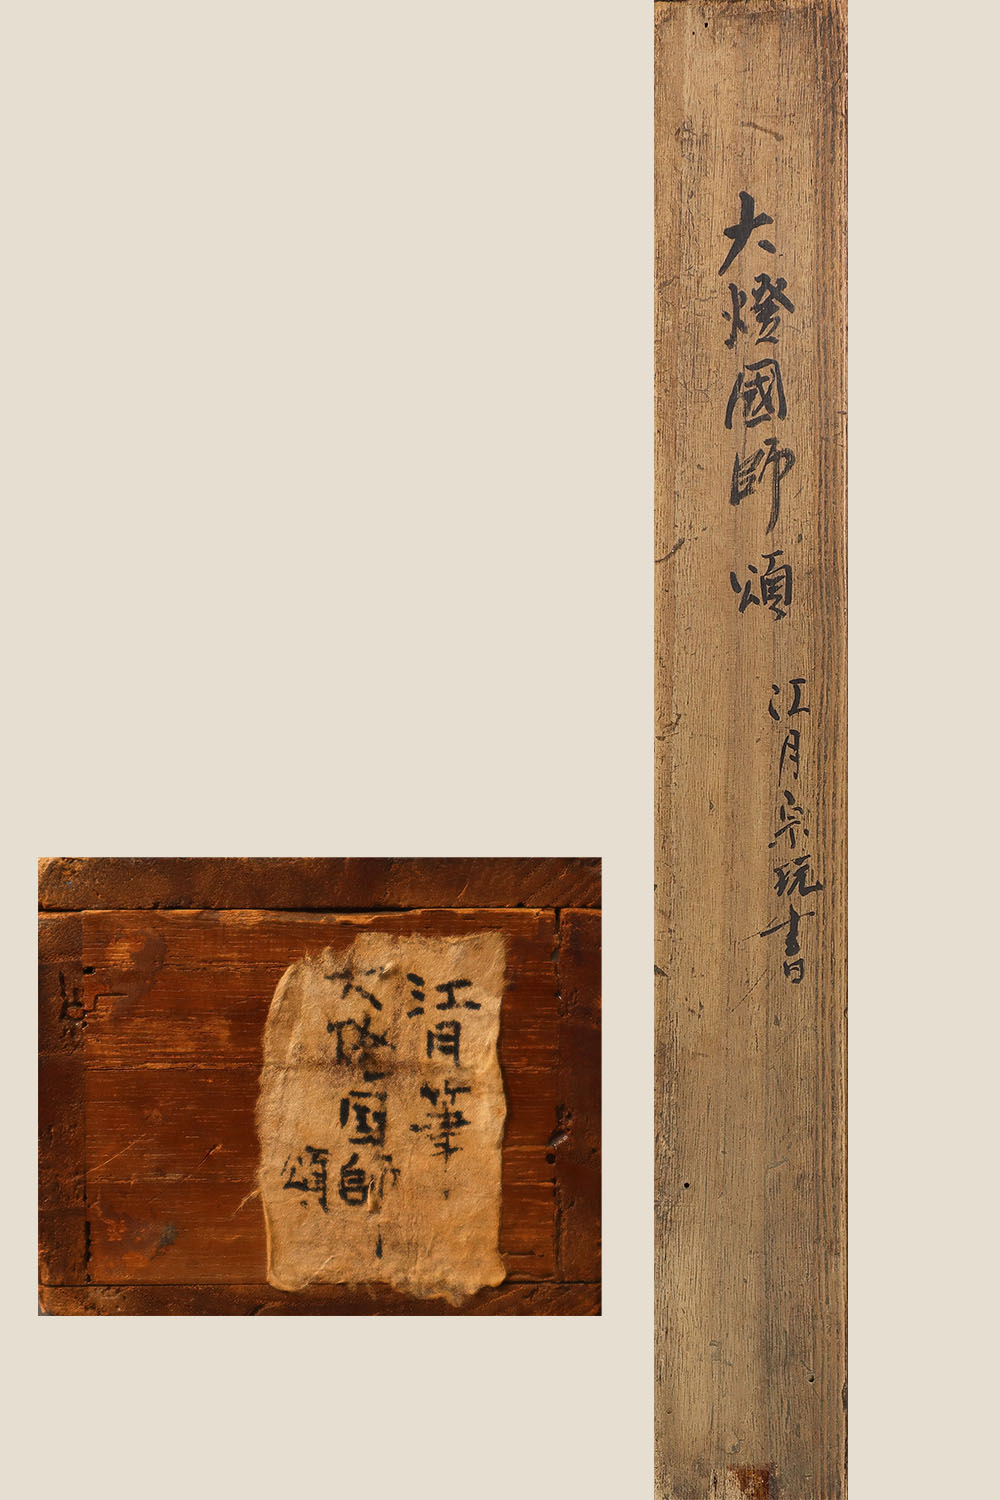 大燈國師頌
江月宗玩書
江月筆
大燈国師
頌